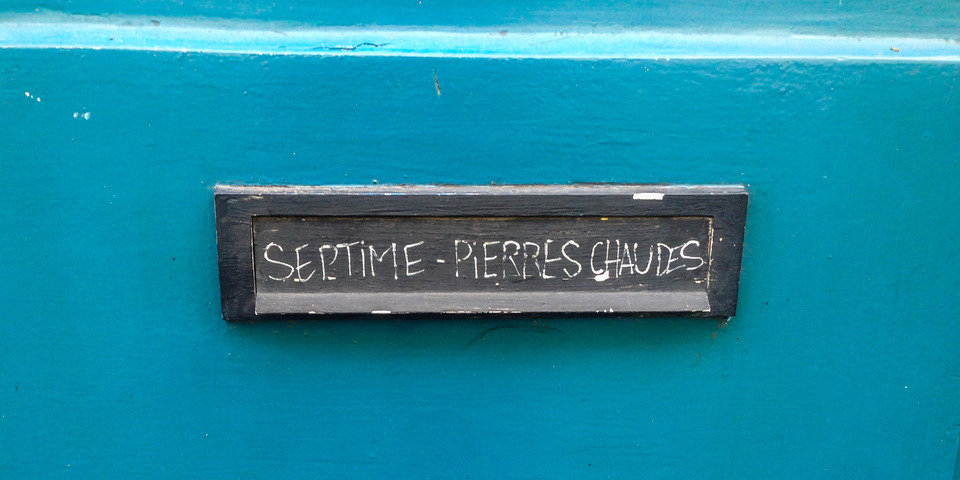 SEPTIME - PIERRES CHAUDES